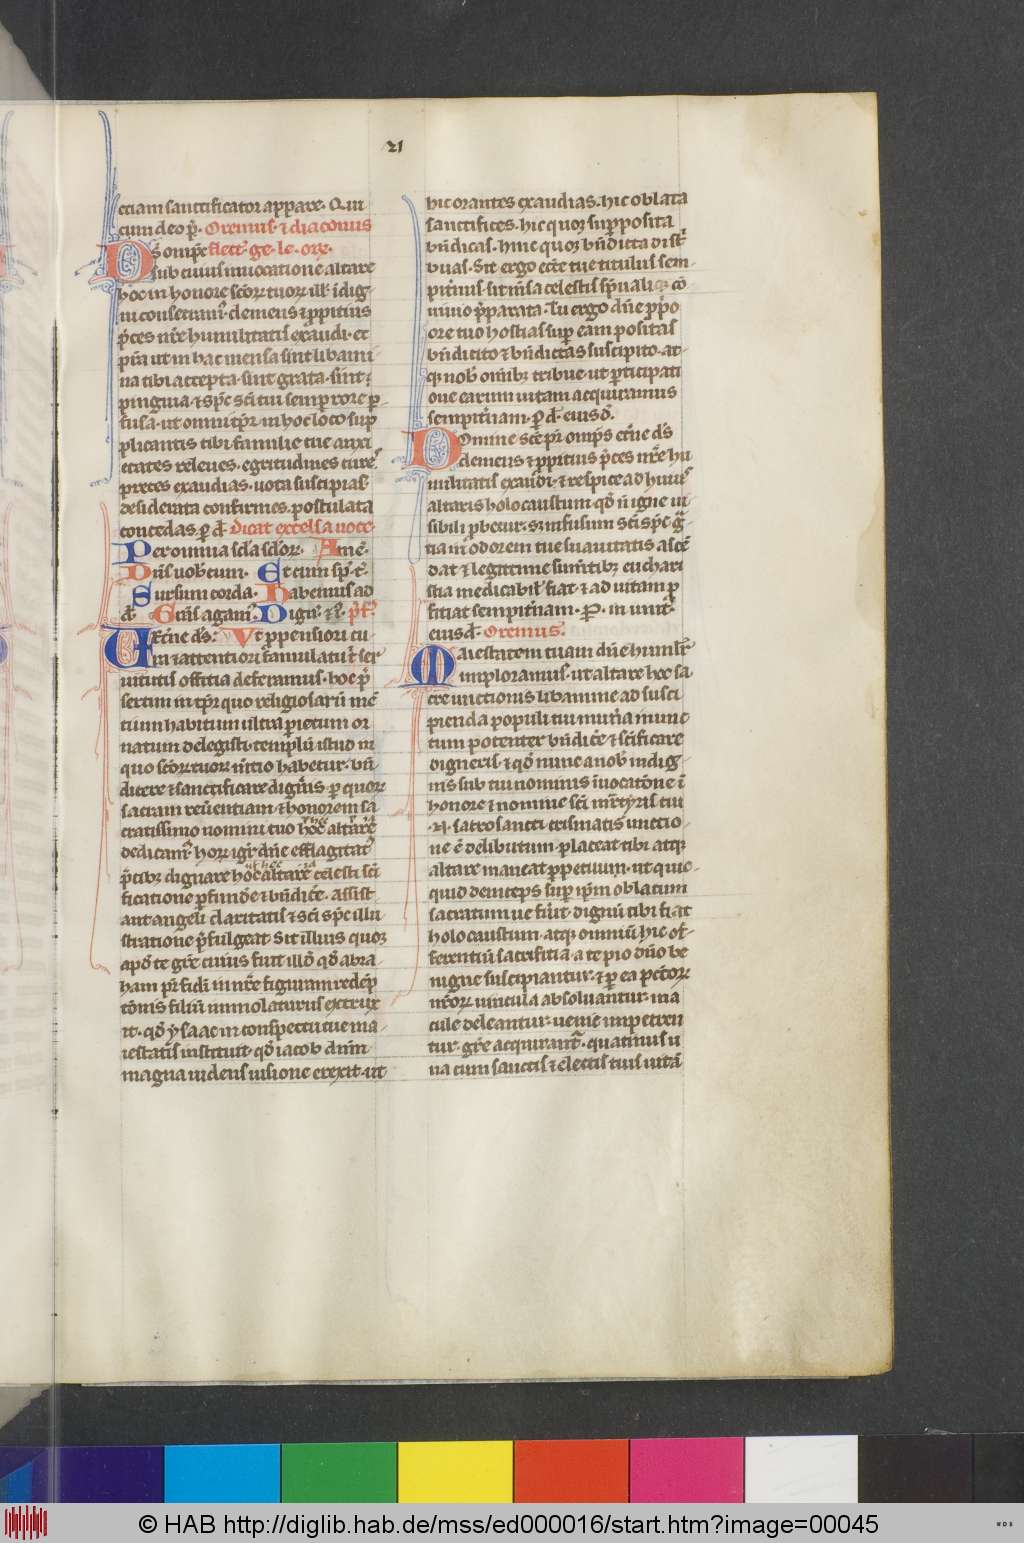 21
etiam sanctificator appare. Q. ui
cum deo p̄. Oremus. ⁊ diaconus
Ds̄ omp̄s flect. ge. le. or̄e.
sub cuius inuocatione altare
hoc in honore sc̄orꝝ tuorꝝ ill. īdig
ni consecram᷒. clemens ⁊ ꝓpitius
p̄ces nr̄e humilitatis exaudi. et
p̄sta ut in hac mensa sint libami
na tibi accepta. sint grata. sint
pinguia. ⁊ sp̄c sc̄i tui semꝑ rore ꝑ
fusa. ut omni tp̄r in hoc loco sup
plicantis tibi familie tue anxi
etates releues. egritudines cures
preces exaudias. uota suscipias
desiderata confirmes. postulata
concedas. ꝑ d. dicat excelsa uoce.
Per omnia sc̄la sc̄lorꝝ. Amē.
Dn̄s uobcum. Et cum sp̄. t.
Sursum corda. Habemus ad
d. Gr̄as agam᷒. Dign᷒. ⁊ i. p̄f.
E t̄ne ds̄. Vt ꝓpensiori cu
ra ⁊ attentiori famulatu t ser
uitutis officia deferamus. hoc p̄
sertim in tp̄r quo religiosarū mē
tium habitum ultra parietum or
natum delegisti. templū istud in
quo sc̄orꝝ tuorꝝ mētio habetur. bn̄
dicere ⁊ sanctificare digneris. ꝑ quorꝝ
sacram reuerentiam ⁊ honorem sa
cratissimo nomini tuo hoc altare
dedicam᷒. horꝝ igr̄ dn̄e efflagitat᷒
p̄cibꝫ dignare hoc altare celesti sc̄i
ficatione ꝑfundē ⁊ bn̄dicē. Assist
ant angeli claritatis ⁊ sc̄i sp̄c illu
stratione p̄fulgeat. Sit illius quoqꝫ
apd̄ te gr̄e cuius fuit illd̄ qd̄ abra
ham pr̄ fidi in nr̄e figuram redēp
tōnis filiū immolaturus extrux
it. qd̄ ysaac in conspectu tue ma
iestatis instituit. qd̄ iacob dnm
magna uidens uisione erexit. ut
hic orantes exaudias. hic oblata
sanctifices. hic quoqꝫ supposita
bn̄dicas. hinc quoqꝫ bn̄dicta dist
buas. Sit ergo ecc̄e tue titulus sem
piternus. sit mēsa celestis spūali cō
uiuio p̄parata. Tu ergo dn̄e ꝓp̄o
ore tuo hostias super eam positas
bn̄dicito ⁊ bn̄dictas suscipito. at
qꝫ nob omībꝫ tribue. ut ꝑticipati
one earum uitam acquiramus
sempiternam. ꝑ d. eiusd̄.
Domine sc̄e pr̄ omp̄s et̄ne ds̄
clemens ⁊ ꝓpitius p̄ces nr̄e hu
militatis exaudi. ⁊ respice ad huiꝰ
altaris holocaustum qd̄ n̄ igne ui
sibili ꝓbetur. sꝫ infusum sc̄i sp̄c gr̄a
tia in odorem tue suauitatis ascē
dat ⁊ legittime sum̄tibꝫ euchari
stia medicabil fiat. ⁊ ad uitam ꝓ
ficiat sempiternam. ꝑ. in unit.
eiusd̄. Oremus.
Maiestatem tuam dn̄e humilr̄
imploramus. ut altare hoc sa
cre unctionis libamine ad susci
pienda populi tui munera inunc
tum potenter bn̄dicē ⁊ sc̄ificare
digneris. ⁊ qd̄ nunc a nob indig
nis sub tui nominis īuocatōne ī
honore ⁊ nomine sc̄i martyris tui
.N. sacrosancti crismatis unctio
ne ē delibutum. placeat tibi atqꝫ
altare maneat ꝑpetuum. ut quic
quid deinceps sup ip̄m oblatum
sacratum ue fuit. dignū tibi fiat
holocaustum. atqꝫ omniū hic of
ferentiū sacrificia a te pio dn̄o be
nigne suscipiantur. ⁊ ꝑ ea pctorꝝ
nr̄orꝝ uincula absoluantur. ma
cule deleantur. uenie impetren
tur. gr̄e acquirant᷒. quatinus u
na cum sanctis ⁊ electis tuis uitā
© HAB http://diglib.hab.de/mss/ed000016/start.htm?image=00045